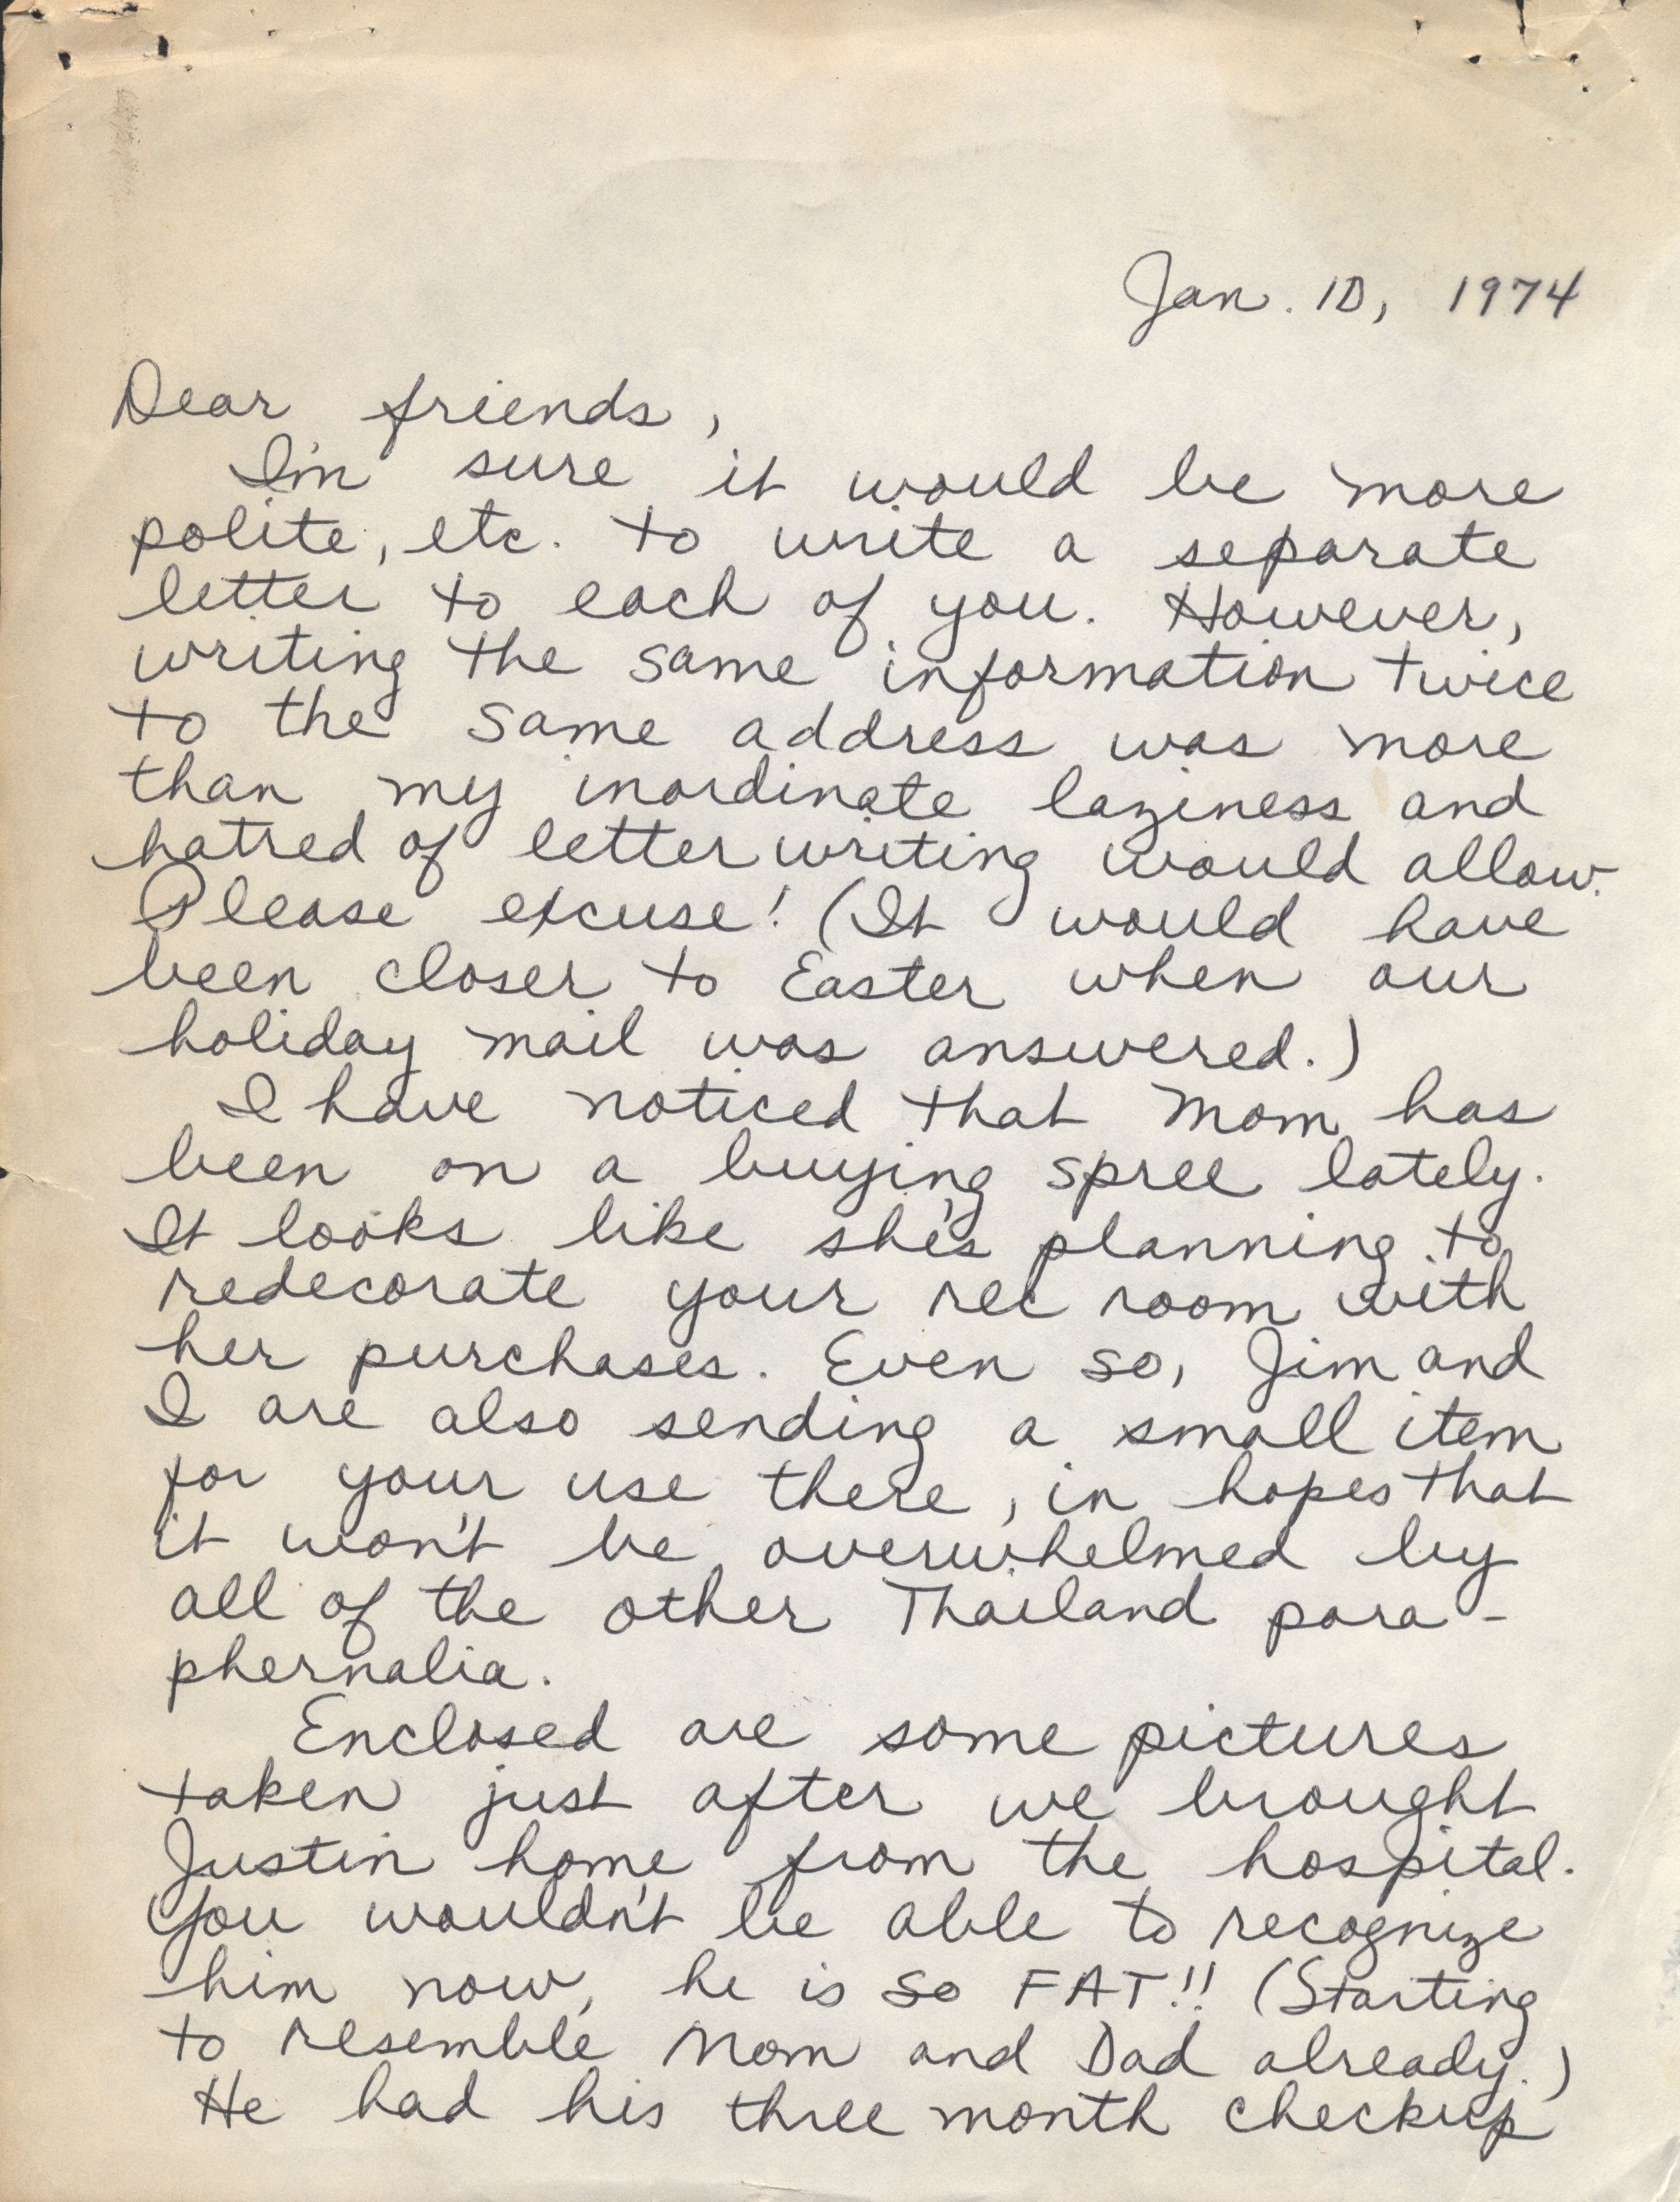 Jan. 10, 1974
Dear friends,
I'm sure it would be more
polite, etc. to write a separate
letter to each of you. However,
writing the same information twice
to the same address was more
than my inordinate laziness and
hatred of letter writing would allow.
Please excuse! (It would have
been closer to Easter when our
holiday mail was answered.)
I have noticed that Mom has
been on a buying spree lately.
It looks like she's planning to
redecorate your rec room with
her purchases. Even so, Jim and
I are also sending a small item
for your use there, in hopes that
it won't be overwhelmed by
all of the other Thailand para-
phernalia.
Enclosed are some pictures
taken just after we brought
Justin home from the hospital.
You wouldn't be able to recognize
him now, he is so FAT!! (Starting
to resemble Mom and Dad already.)
He had his three month checkup